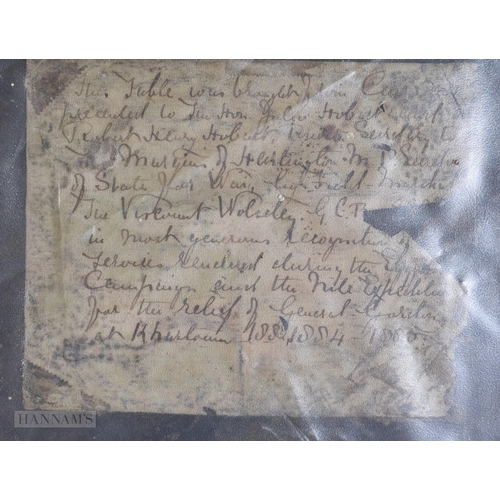 This Table was brought from
presented to The Hon
Robert Henry Hobart, Private Secretary to
The Marquis of Hartington M.P. Secretary
of State for War, by Field-Marshal
The Viscount Wolseley, G.C.
in most generous recognition of
services rendered during the
Campaign and the Nile Expedition
for the relief of General Gordon
at Khartoum 1884 -
HANNAM'S